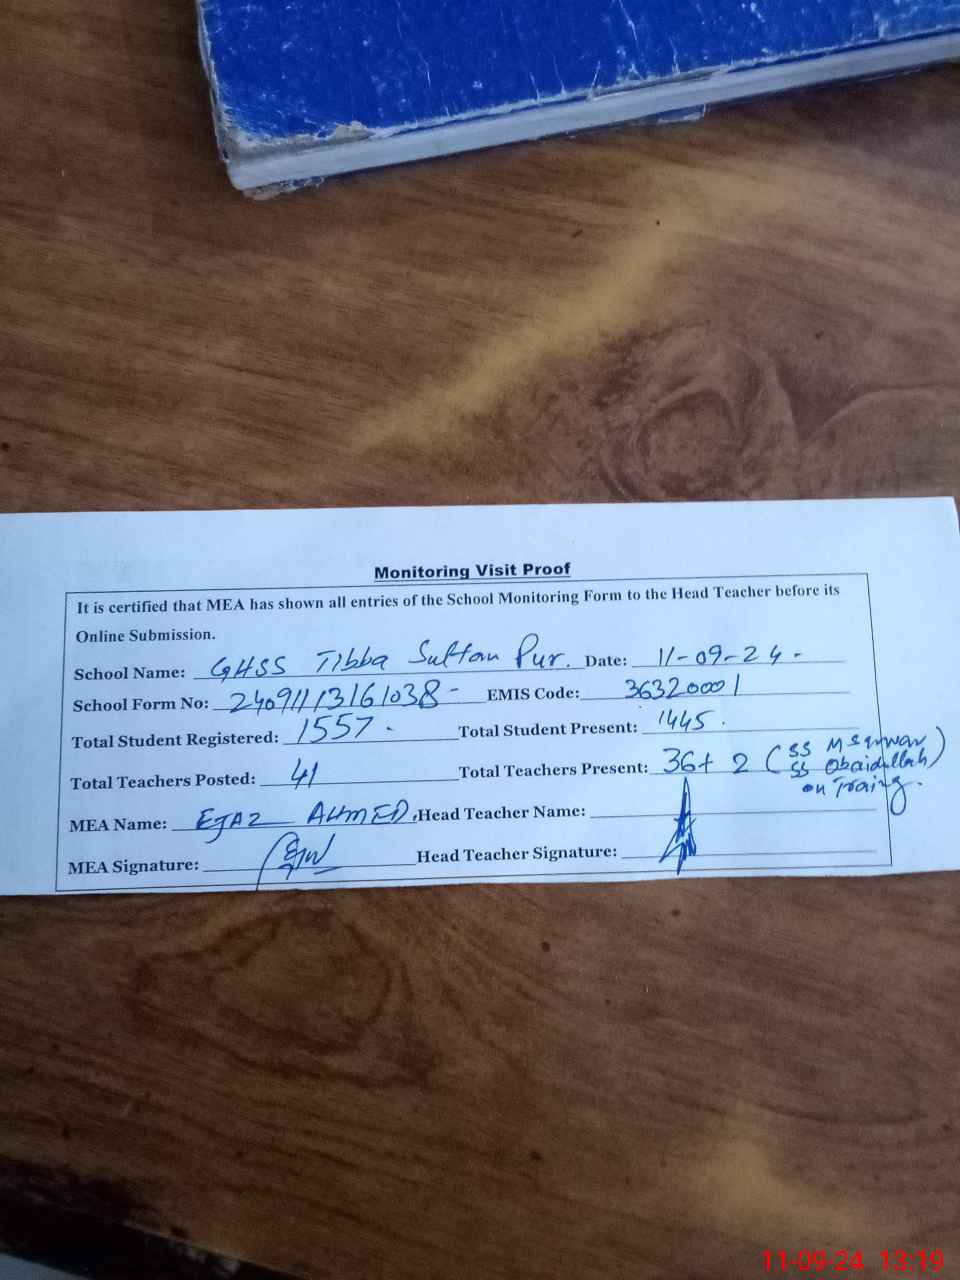 Monitoring Visit Proof
It is certified that MEA has shown all entries of the School Monitoring Form to the Head Teacher before its
Online Submission.
School Name: GHSS Tibba Sultan Pur. Date: 11-09-24-
School Form No: 24091113161038- EMIS Code: 36320001
Total Student Registered: 1557. Total Student Present: 1445.
Total Teachers Posted: 41 Total Teachers Present: 36+ 2 (SS
SS Obaidullah)
on Traing.
MEA Name: EJAZ AHMED, Head Teacher Name:
MEA Signature: Head Teacher Signature:
11-09-24 13:19